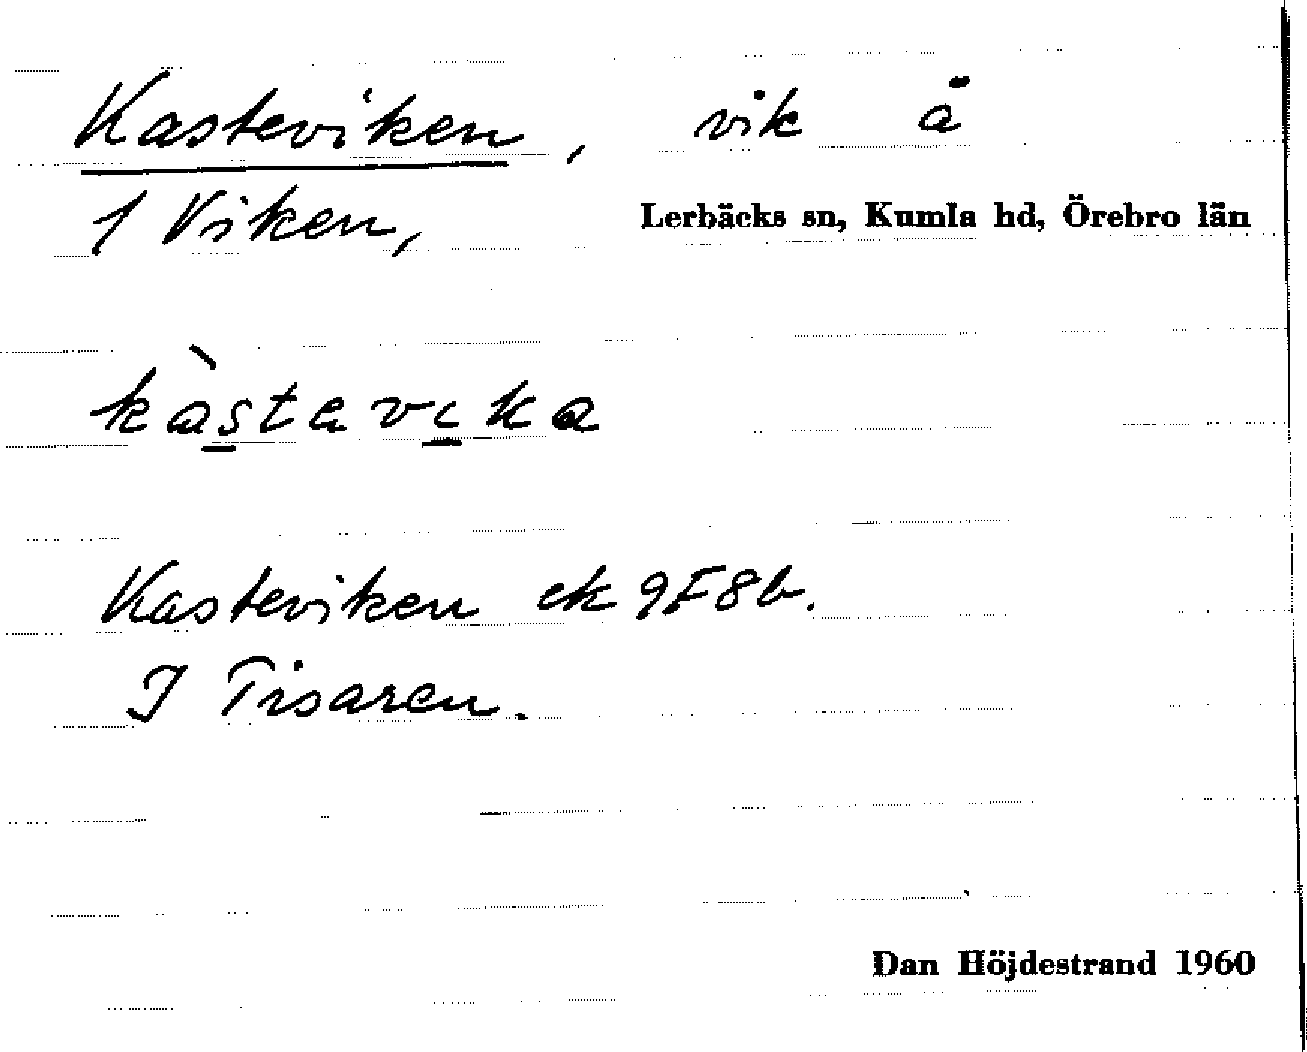 Kasteviken, vik å
1 Viken, Lerbäcks sn, Kumla hd, Örebro län
kàstavika
Kasteviken ek 9F8b.
I Tisaren.
Dan Höjdestrand 1960